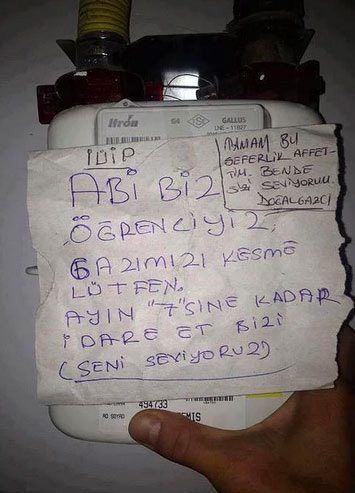 Itrón
G4
GALLUS
İDİP
ABİ BİZ
ÖĞRENCİYİZ.
GAZIMIZI KESME
LÜTFEN.
AYIN "7"SİNE KADAR
İDARE ET BİZİ
(SENİ SEVİYORUZ)
TAMAM BU
SEFERLİK AFFET-
TİM. BENDE
SİZİ SEVİYORUM.
DOĞALGAZCI
494733